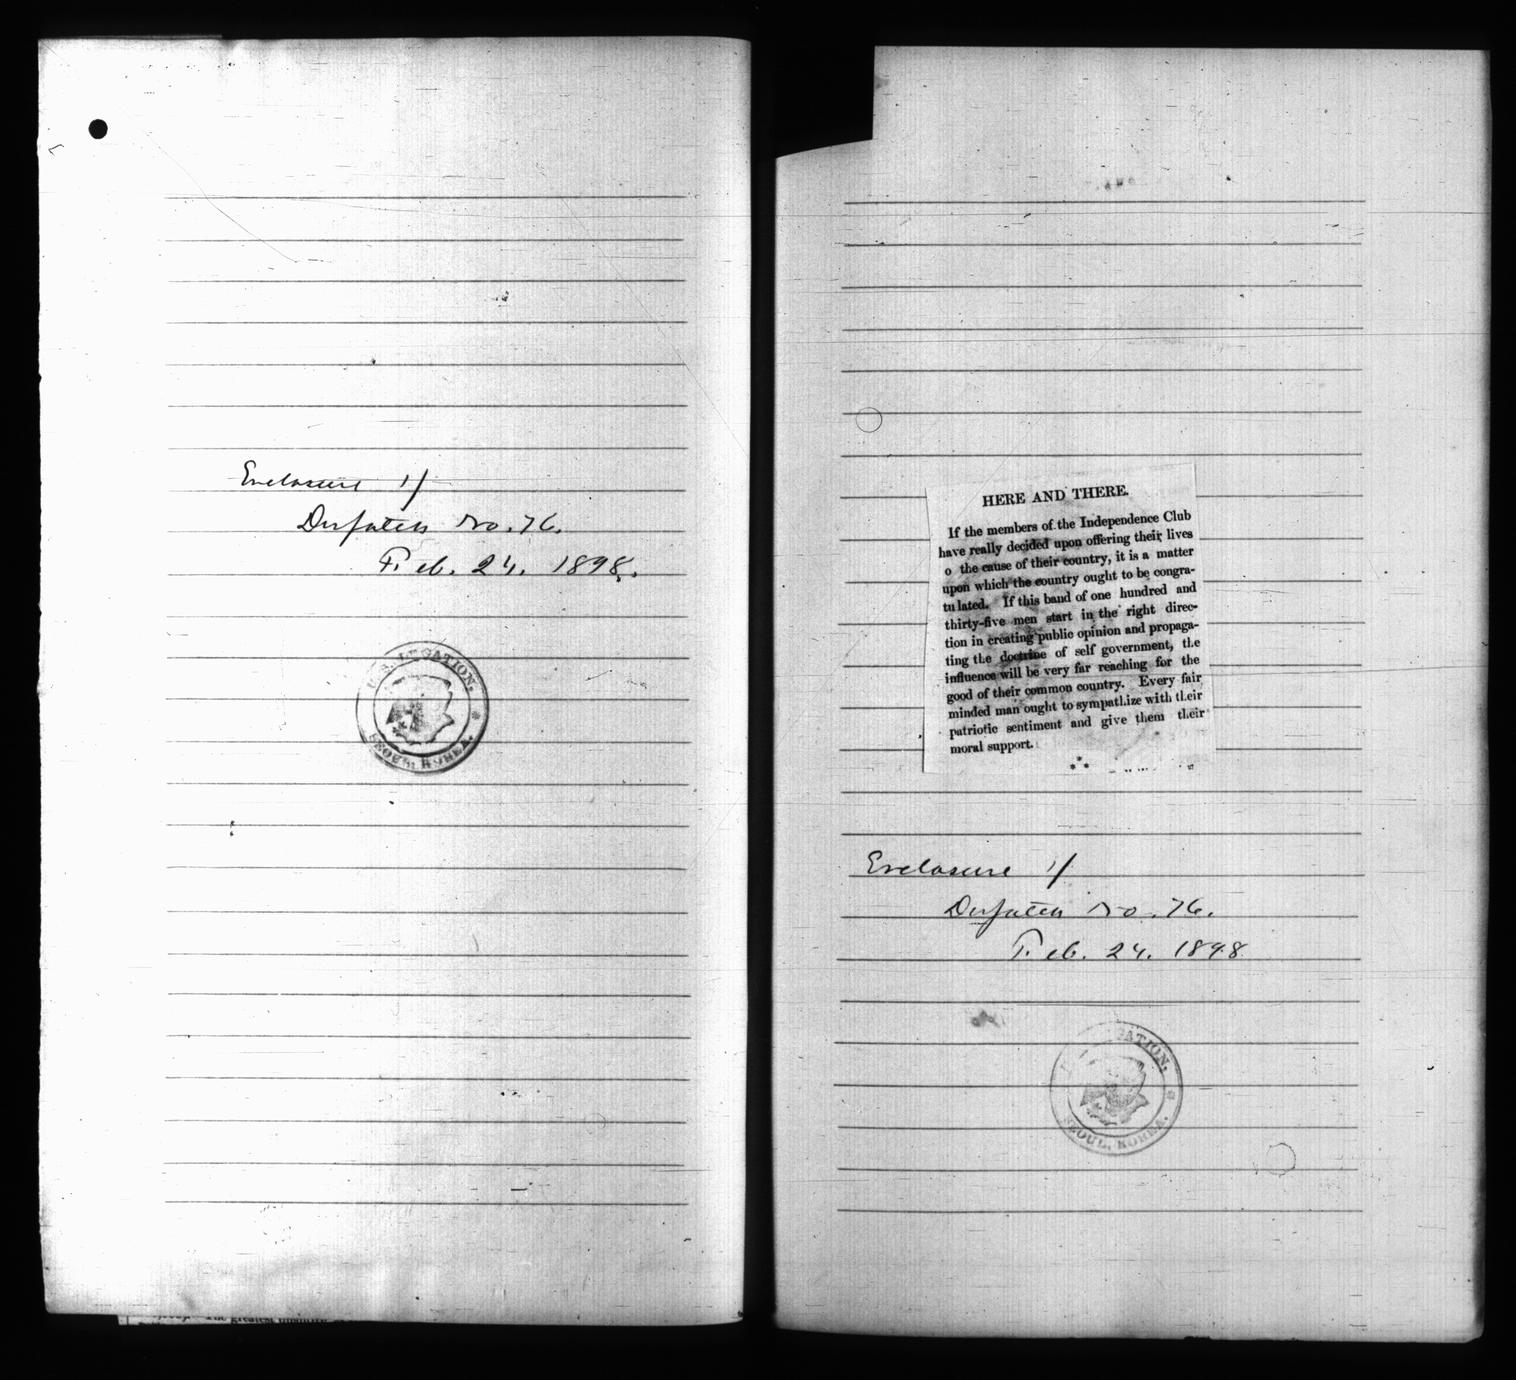 Enclosure 1/
Dispatch No. 76.
Feb. 24. 1898.
U.S. LEGATION.
SEOUL, KOREA.
The greatest
HERE AND THERE.
If the members of the Independence Club
have really decided upon offering their lives
o the cause of their country, it is a matter
upon which the country ought to be congra-
tulated. If this band of one hundred and
thirty-five men start in the right direc-
tion in creating public opinion and propaga-
ting the doctrine of self government, the
influence will be very far reaching for the
good of their common country. Every fair
minded man ought to sympathize with their
patriotic sentiment and give them their
moral support.
Enclosure 1/
Dispatch No. 76.
Feb. 24. 1898
GATION.
SEOUL, KOREA.